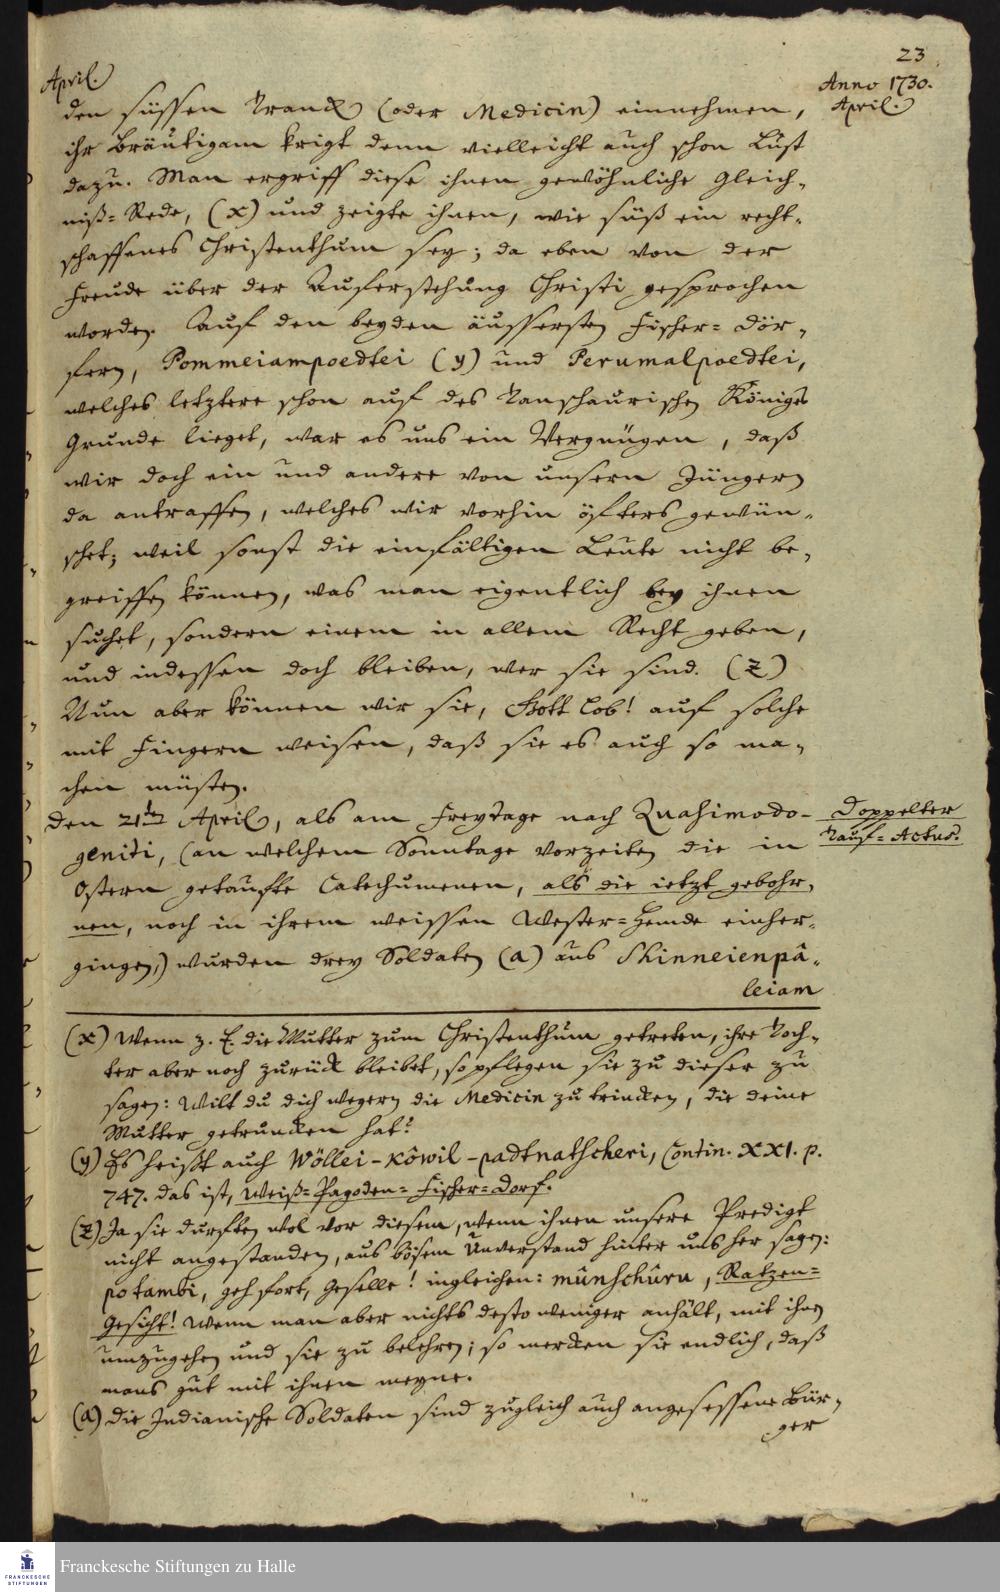 23
April.
Anno 1730.
April.
den süssen Tranck (oder Medicin) einnehmen,
ihr Bräutigam krigt denn vielleicht auch schon Lust
dazu. Man ergriff diese ihnen gewöhnliche Gleich-
niß-Rede, (x) und zeigte ihnen, wie süß ein recht-
schaffenes Christenthum sey; da eben von der
Freude über der Auferstehung Christi gesprochen
worden. Auf den beyden äussersten Fischer-Dör-
fern, Pommeiampoedtei (y) und Perumalpoedtei,
welches letztere schon auf des Tanschaurischen Königes
Grunde lieget, war es uns ein Vergnügen, daß
wir doch ein und andere von unsern Jüngern
da antraffen, welches wir vorhin öfters gewün-
schet; weil sonst die einfältigen Leute nicht be-
greiffen können, was man eigentlich bey ihnen
suchet, sondern einem in allem Recht geben,
und indessen doch bleiben, wer sie sind. (z)
Nun aber können wir sie, Gott Lob! auf solche
mit Fingern weisen, daß sie es auch so ma-
chen müsten.
Den 21ten April, als am Freytage nach Quasimodo-
geniti, (an welchem Sonntage vorzeiten die in
Ostern getaufte Catechumenen, als die ietzt gebohr-
nen, noch in ihrem weissen Wester-Hemde einher-
gingen,) wurden drey Soldaten (a) aus Shinneienpâ-
leiam
Doppelter
Tauf-Actus.
(x) Wenn z. E. die Mutter zum Christenthum getreten, ihre Toch-
ter aber noch zurück bleibet, so pflegen sie zu dieser zu
sagen: Wilt du dich wegern die Medicin zu trincken, die deine
Mutter getruncken hat?
(y) Es heißt auch Wöllei-kôwil-padtnatscheri, Contin. XXI. p.
747. das ist, Weiß-Pagoden-Fischer-Dorf.
(z) Ja sie durften wol vor diesem, wenn ihnen unsere Predigt
nicht angestanden, aus bösem Unverstand hinter uns her sagen:
po tambi, geh fort, Geselle! ingleichen: mûnschûru, Ratzen-
Gesicht! Wenn man aber nichts desto weniger anhält, mit ihnen
umzugehen und sie zu belehren; so mercken sie endlich, daß
mans gut mit ihnen meyne.
(a) die Indianische Soldaten sind zugleich auch angesessene Bür-
ger
FRANCKESCHE
STIFTUNGEN
Franckesche Stiftungen zu Halle